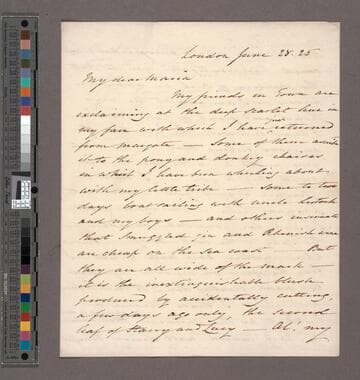 London June 28. 25
My dear Maria
My friends in Town are
exclaiming at the deep scarlet hue in
my face with which I have returned
from margate — Some of them
it to the pony and donkey chaises
in which I have been wheeling about
with my little tribe — some to two
days boat sailing with uncle
and my boys — and others insinuate
that Smuggled gin and
are cheap on the sea coast But
they are all wide of the mark —
it is the inextinguishable blush
produced by accidentally cutting,
a few days ago only, the second
leaf of Harry and Lucy — Ah! my